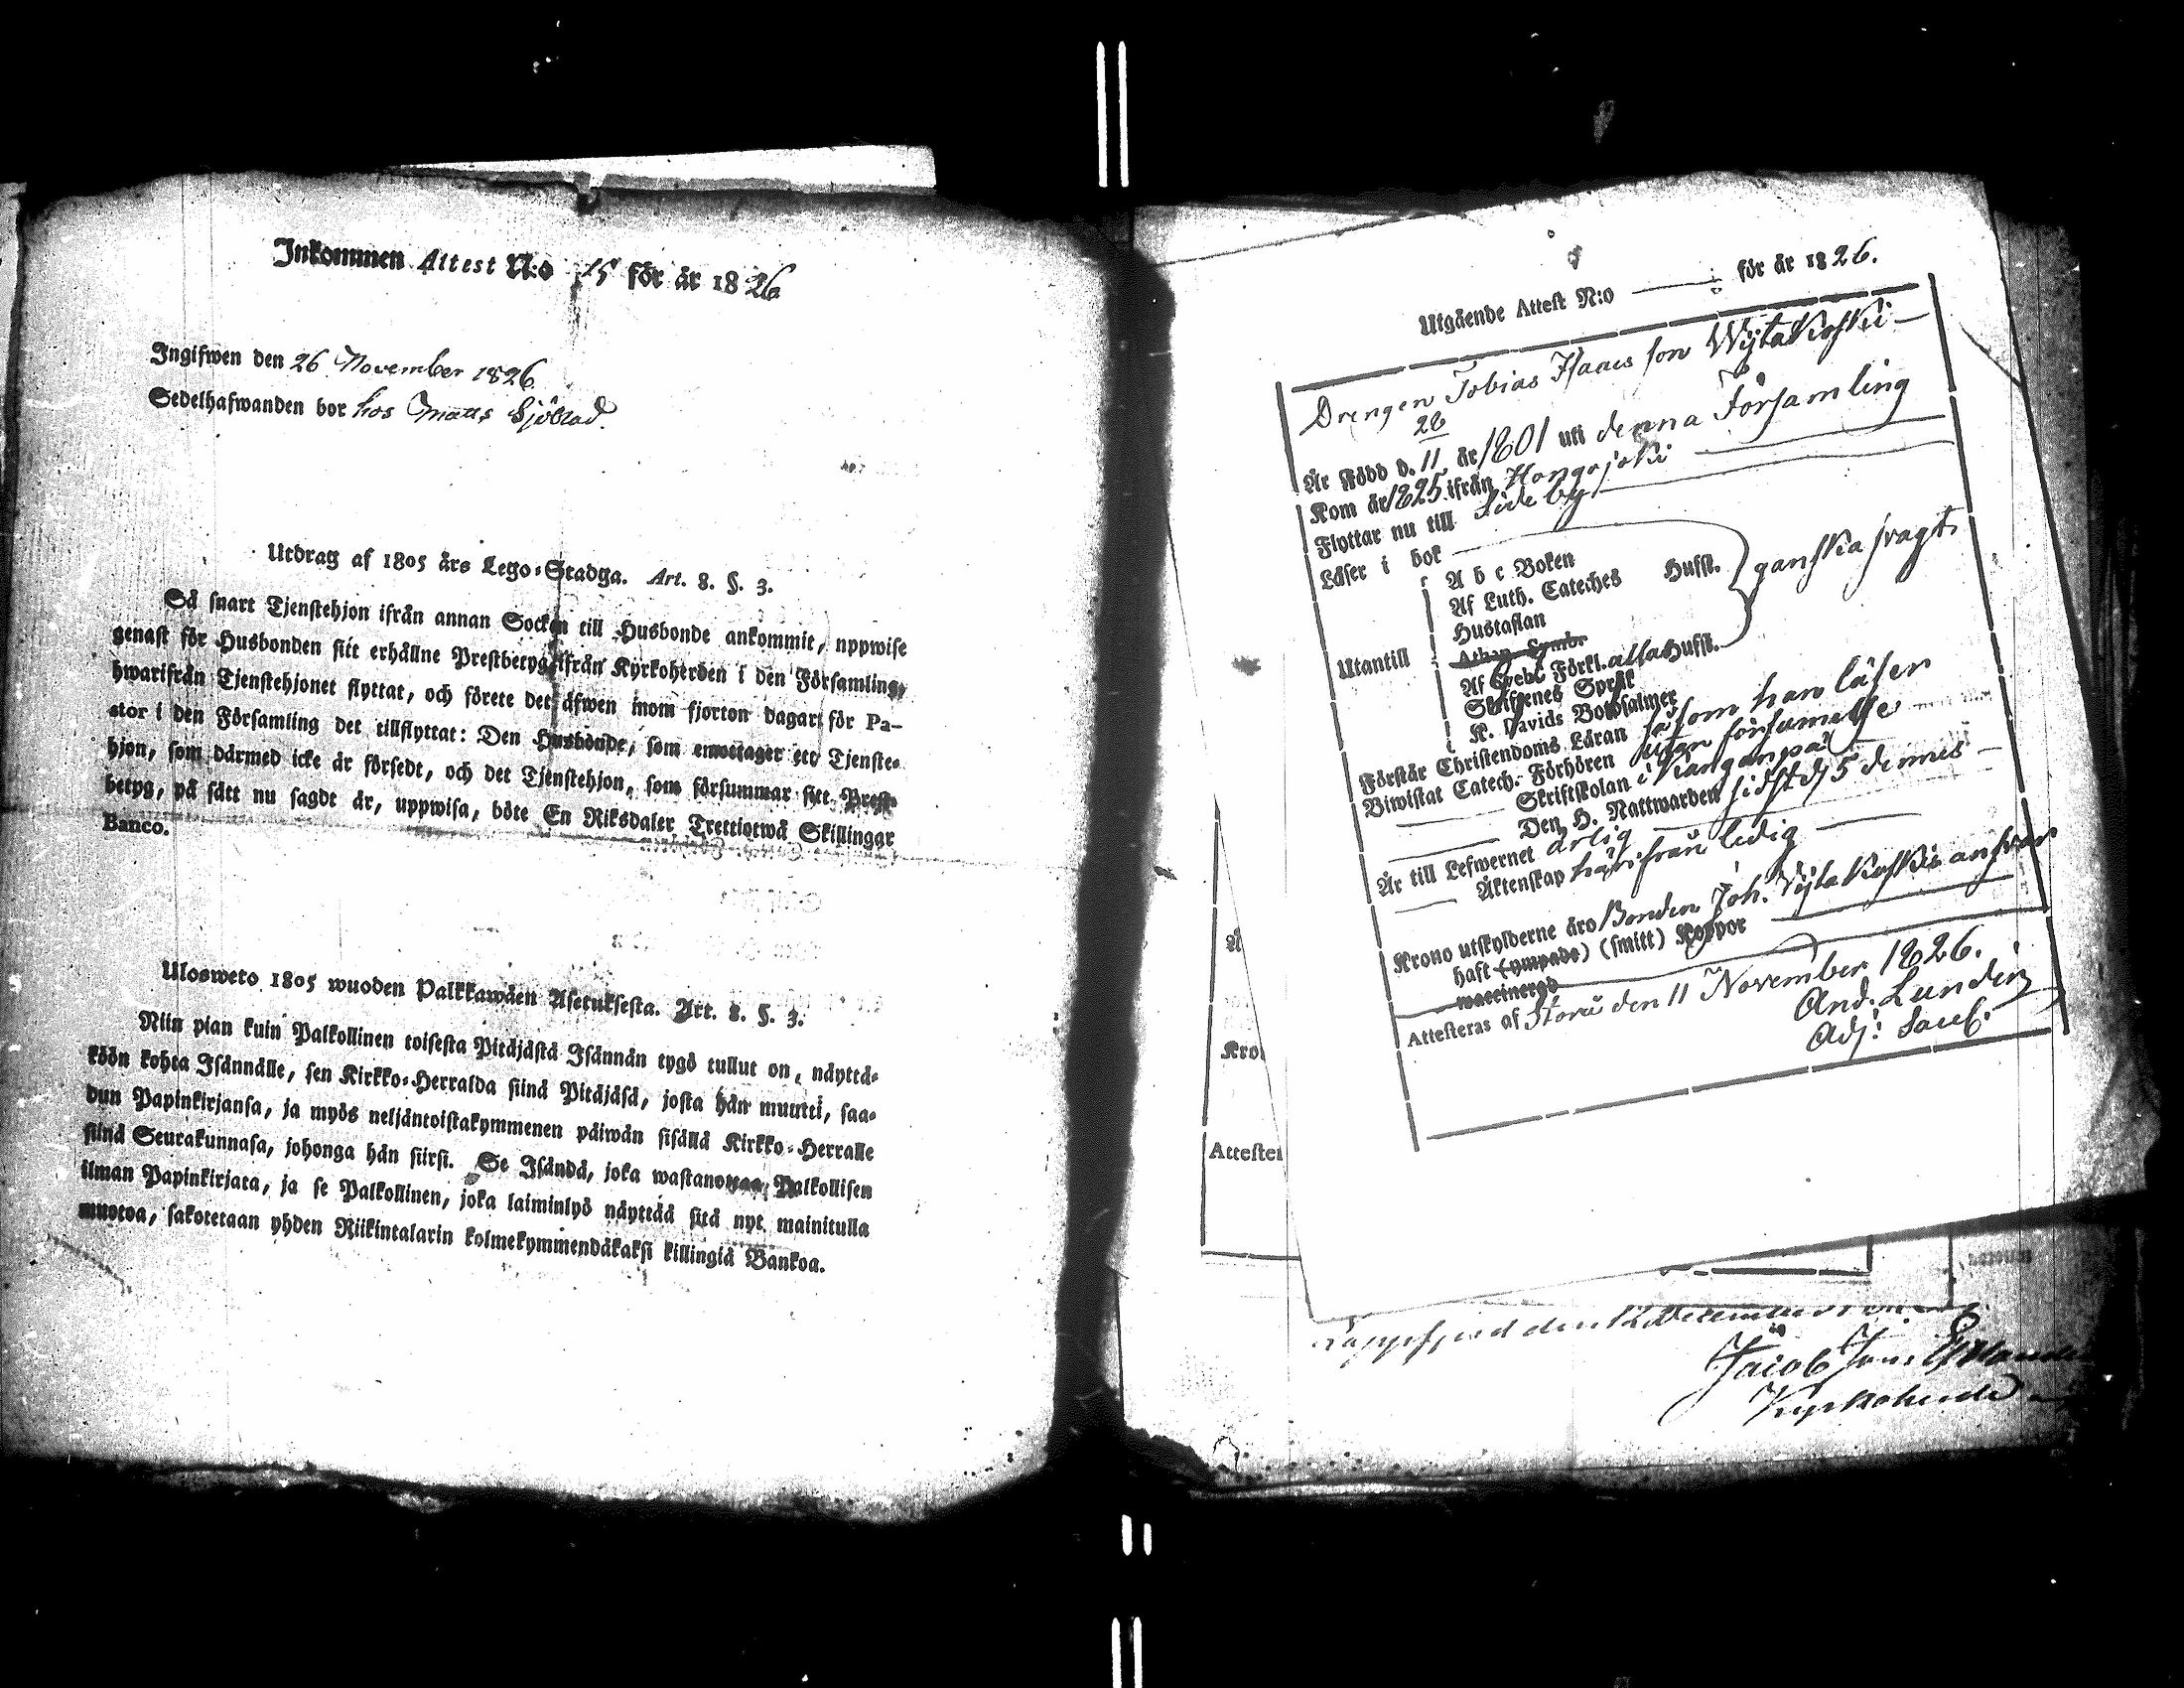 Inkommen Attest N:o 15 för år 1826
Ingifwen den 26 November 1826
Sedelhafwanden bor hos Matts Sjöblad.
Utdrag af 1805 års Lego-Stadga. Art. 8. §. 3.
Så snart Tjenstehjon ifrån annan Socken till Husbonde ankommit, uppwise
genast för Husbonden sitt erhållne Prestbetyg ifrån Kyrkoherden i den Församling,
hwarifrån Tjenstehjonet flyttat, och förete det äfwen inom fjorton dagar för Pa-
stor i den Församling det tillflyttat: Den Husbonde, som emottager ett Tjenste-
hjon, som därmed icke är försedt, och det Tjenstehjon, som försummar sitt Prest-
betyg, på sätt nu sagdt är, uppwisa, böte En Riksdaler Trettiotwå Skillingar
Banco.
Ulosweto 1805 wuoden Palkkawäen Asetuksesta. Art. 8. §. 3.
Niin pian kuin Palkollinen toisesta Pitäjästä Isännän tygö tullut on, näyttä-
köön kohta Isännälle, sen Kirkko-Herralda siinä Pitäjäsä, josta hän muutti, saa-
dun Papinkirjansa, ja myös neljäntoistakymmenen päiwän sisällä Kirkko-Herralle
siinä Seurakunnasa, johonga hän siirsi. Se Isändä, joka wastanottaa Palkollisen
ilman Papinkirjata, ja se Palkollinen, joka laiminlyö näyttää sitä nyt mainitulla
muotoa, sakotetaan yhden Riikintalarin kolmekymmendäkaksi killingiä Bankoa.
Utgående Attest N:o för år 1826.
Drengen Tobias Isaacs son Wijtakoski
28
Är Född d. 11 år 1801 uti denna Församling
Kom år 1825 ifrån Hongojoki
Flyttar nu till Sideby
Läser i bok
A b c Boken
Af Luth. Cateches Husst. ganska svagt
Hustaflan
Utantill Athan. Symb.
Af Swebi. Förkl. alla Husst.
Skriftenes Språk
K. Davids Botpsalmer
Förstår Christendoms Läran såsom han läser
Biwistat Catech. Förhören utan försumelse
Skriftskolan i Kanganpää
Den H. Nattwarden sidst d. 5 dennes
Är till Lefwernet ärlig
Äktenskap härifrån ledig
Krono utskylderne äro Bonden Joh. Wijtakoskis answar
haft (ympade) (smitt) Koppor
waccinerad
Attesteras af Storå den 11 November 1826.
And. Lundén
Adj. Sacel.
Å
Kro
Attester
Lappfjerd den 12 December
Jacob
Kyrkoherde